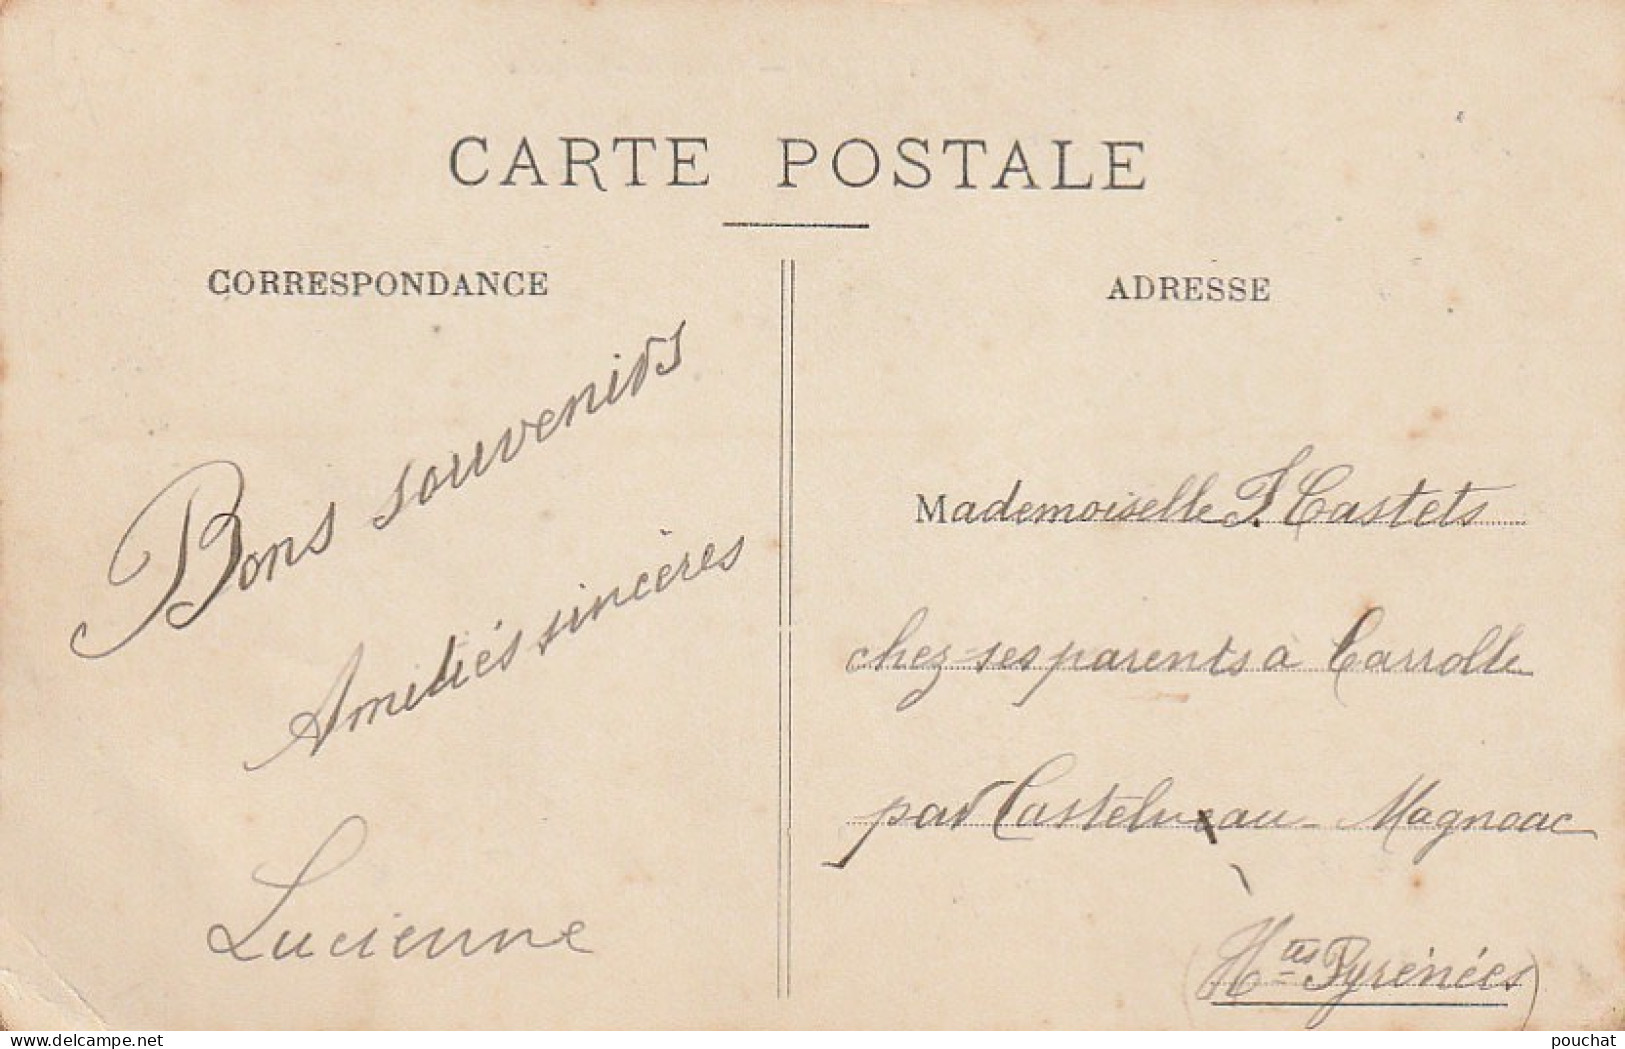 CARTE POSTALE
CORRESPONDANCE
Bons souvenirs
Amitiés sincères
Lucienne
ADRESSE
Mademoiselle F. Castets
chez ses parents à Carrolle
par Castelneau-Magnoac
(Htes Pyrénées)
delcampe.net
pouchat